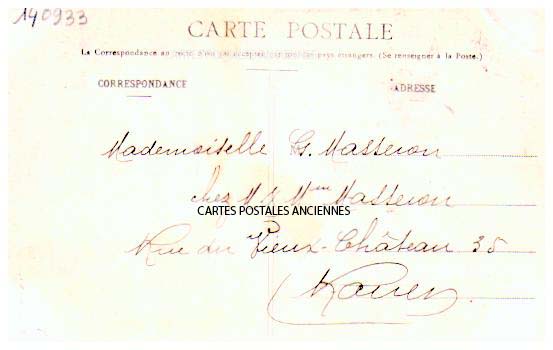 140933
CARTE POSTALE
La Correspondance au recto n'est pas acceptée par tous les pays étrangers. (Se renseigner à la Poste.)
CORRESPONDANCE
ADRESSE
Mademoiselle G. Masseron
chez M & Mme Masseron
CARTES POSTALES ANCIENNES
Rue du Vieux-Château 35